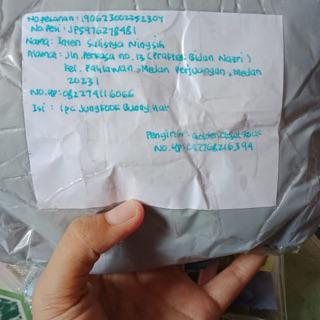 No.pesanan : 190623002252304
No.Resi : JP5976278481
Nama : Inten Sulisya Ningsih
Alamat : Jln. Perkasa no. 13 (Praktek Bidan Nazri)
kel. Pahlawan, Medan Perjuangan, Medan
20231
No. HP : 082274116066
Isi : 1pc Jungkook Bunny Hat
Pengirim :
No. HP : 082268216394